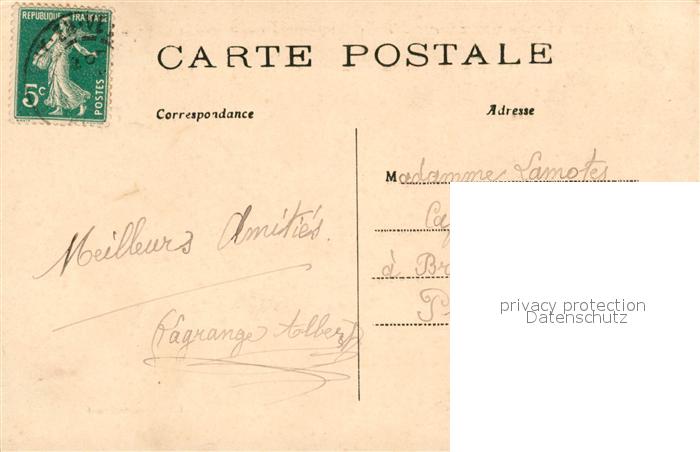 REPUBLIQUE FRANÇAISE
5c
POSTES
CARTE POSTALE
Correspondance
Adresse
Madamme Lamotes
à Br
P
Meilleurs Amitiés.
Lagrange Albert
privacy protection
Datenschutz